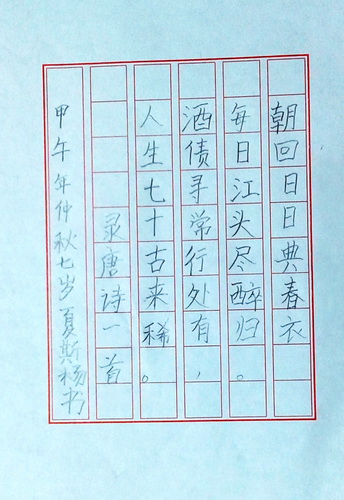 朝回日日典春衣
每日江头尽醉归。
酒债寻常行处有，
人生七十古来稀。
录唐诗一首
甲午年仲秋七岁夏斯杨书